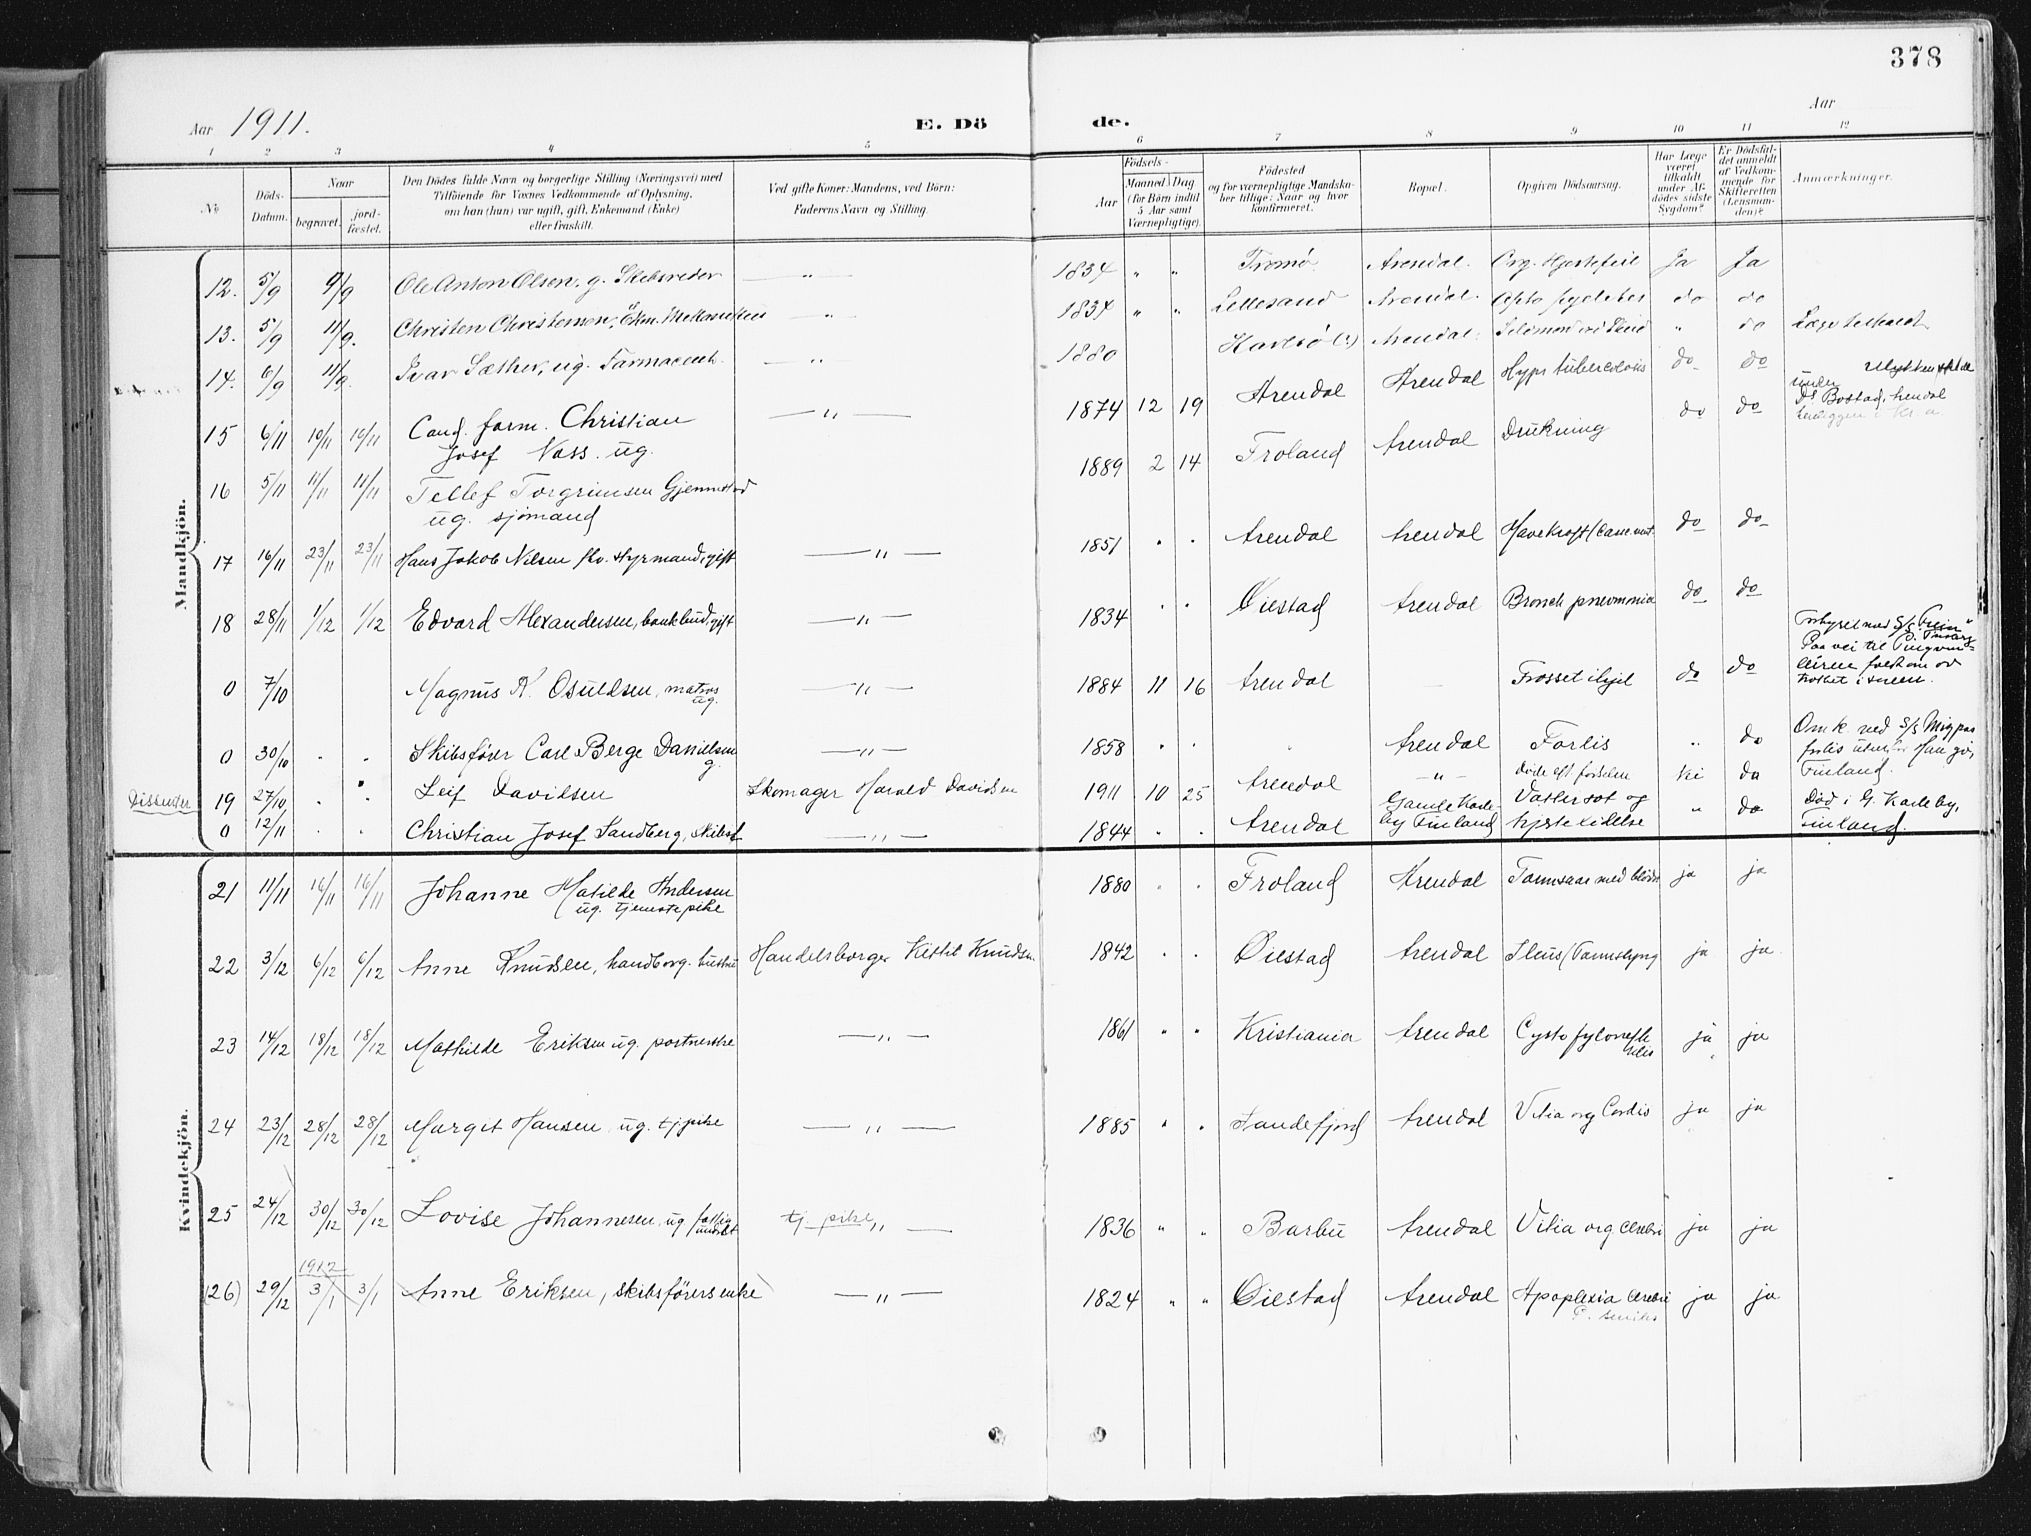 378
Aar 1911.
E. Dö
de.
Aar
1 2 3 4 5 6 7 8 9 10 11 12
No
Döds-Datum.
Naar
begravet.
jord-fæstet.
Den Dödes fulde Navn og borgerlige Stilling (Næringsvei) med
Tilföiende for Voxnes Vedkommende af Oplysning,
om han (hun) var ugift, gift, Enkemand (Enke)
eller fraskilt.
Ved gifte Koner: Mandens, ved Börn:
Faderens Navn og Stilling.
Födsels-
Aar
Maaned Dag
(for Börn indtil
5 Aar samt
Værnepligtige).
Födested
og for værnepligtige Mandska-
ber tillige: Naar og hvor
konfirmeret.
Bopæl.
Opgiven Dödsaarsag.
Har Læge
været
tilkaldt
under Af-
dödes sidste
Sygdom?
Er Dödsfal-
det anmeldt
af Vedkom-
mende for
Skifteretten
(Lensman-
den)?
Anmærkninger.
Mandkjön.
12. 5/9 9/9 Ole Anton Olsen, g. Skibsreder — " — 1834 " " Tromø Arendal. Org. Hjertefeil Ja Ja
13. 5/9 11/9. Christen Christensen, — " — 1834 " " Lillesand Arendal. do do
14. 6/9 11/9 Ivar Sæther, ug. Farmaceut. — " — 1880 Arendal. " do
15 6/11 10/11 10/11 Cand. farm. Christian — " — 1874 12 19 Arendal Arendal Hyps tuberculosis do do
Josef Nass. ug.
under
Dr Bostad, Arendal
16 5/11 11/11 11/11 Tellef Torgrimsen 1889 2 14 Froland Arendal Drukning do do
ug. sjømand
17 16/11 23/11 23/11 Hans Jakob Nilsen fhv. styrmand, gift — " — 1851 " " Arendal Arendal do do
18 28/11 1/12 1/12 Edvard Alexandersen, bankbud, gift — " — 1834 " " Øiestad Arendal Bronch pneumonia do do
0 7/10 Magnus K. Osuldsen, matros — " — 1884 11 16 Arendal — Frosset ihjel do do
ug.
Paa vei til
0 30/10 " " Skibsfører Carl Berge Danielsen — " — 1858 " " " Arendal Forlis " do
g.
Omk. ved S/S
forlis
Finland.
Dissenter 19 27/10 " " Leif Davidsen Skomager Harald Davidsen 1911 10 25 Arendal — " — Døde eft. fødselen Nei do
0 12/11 " " Christian Josef Sandberg, — " — 1844 " " Arendal Gamle Karle-
by Finland Vattersot og
hjertelidelse " do Død i G. Karleby,
Finland.
Kvindekjön.
21 11/11 16/11 16/11 Johanne Matilde Andersen 1880 " " Froland Arendal ja ja
ug. tjenestepike
22 3/12 6/12 6/12 Anne Knudsen, handborg. hustru Handelsborger Kittil Knudsen 1842 " " Øiestad Arendal ja ja
23 14/12 18/12 18/12 Mathilde Eriksen ug. — " — 1861 " " Kristiania Arendal ja ja
24 23/12 28/12 28/12 Margit Hansen ug. tj. pike — " — 1885 " " Sandefjord Arendal Vitia org Cordis ja ja
25 24/12 30/12 30/12 Lovise Johannesen, ug tj. pike " — 1836 " " Barbu Arendal Vitia org cerebri ja ja
1912
(26) 29/12 3/1 3/1 Anne Eriksen, skibsførers enke — " — 1824 " " Øiestad Arendal Apoplexia cerebri ja ja